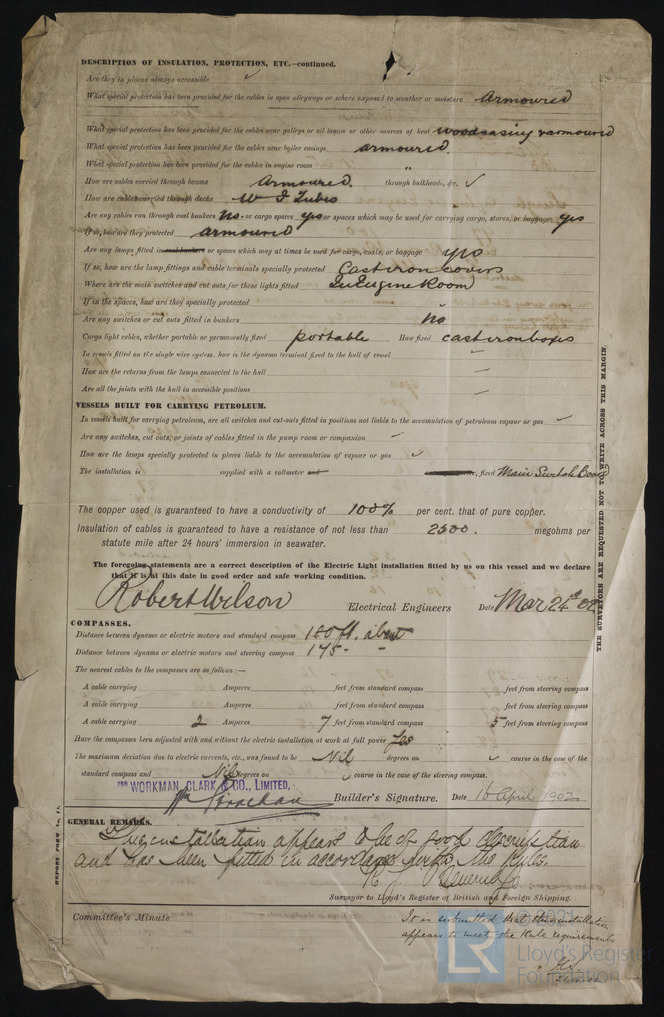 DESCRIPTION OF INSULATION, PROTECTION, ETC.—continued.
Are they in places always accessible ✓
What special protection has been provided for the cables in open alleyways or where exposed to weather or moisture Armoured
What special protection has been provided for the cables near galleys or oil lamps or other sources of heat woodcasing & armoured
What special protection has been provided for the cables near boiler casings armoured.
What special protection has been provided for the cables in engine room "
How are cables carried through beams Armoured. through bulkheads, &c. ✓
How are cables carried through decks W I Tubes
Are any cables run through coal bunkers No. or cargo spaces yes or spaces which may be used for carrying cargo, stores, or baggage yes
If so, how are they protected armoured
Are any lamps fitted in coal bunkers or spaces which may at times be used for cargo, coals, or baggage yes
If so, how are the lamp fittings and cable terminals specially protected Cast iron covers
Where are the main switches and cut outs for these lights fitted In Engine Room
If in the spaces, how are they specially protected
Are any switches or cut outs fitted in bunkers no
Cargo light cables, whether portable or permanently fixed portable How fixed cast iron boxes
In vessels fitted on the single wire system, how is the dynamo terminal fixed to the hull of vessel —
How are the returns from the lamps connected to the hull —
Are all the joints with the hull in accessible positions —
VESSELS BUILT FOR CARRYING PETROLEUM.
In vessels built for carrying petroleum, are all switches and cut-outs fitted in positions not liable to the accumulation of petroleum vapour or gas ✓
Are any switches, cut outs, or joints of cables fitted in the pump room or companion ✓
How are the lamps specially protected in places liable to the accumulation of vapour or gas ✓
The installation is supplied with a voltmeter and , fixed Main Switch Board
The copper used is guaranteed to have a conductivity of 100% per cent. that of pure copper.
Insulation of cables is guaranteed to have a resistance of not less than 2500. megohms per
statute mile after 24 hours' immersion in seawater.
The foregoing statements are a correct description of the Electric Light installation fitted by us on this vessel and we declare
that it is at this date in good order and safe working condition.
Robert Wilson Electrical Engineers Date Mar 24th 02
COMPASSES.
Distance between dynamo or electric motors and standard compass 180 ft. about
Distance between dynamo or electric motors and steering compass 175 - -
The nearest cables to the compasses are as follows:—
A cable carrying Amperes feet from standard compass feet from steering compass
A cable carrying Amperes feet from standard compass feet from steering compass
A cable carrying 2 Amperes 7 feet from standard compass 5 feet from steering compass
Have the compasses been adjusted with and without the electric installation at work at full power Yes
The maximum deviation due to electric currents, etc., was found to be Nil degrees on ✓ course in the case of the
standard compass and Nil degrees on ✓ course in the case of the steering compass.
FOR WORKMAN, CLARK & CO., LIMITED,
Wm Strachan Builder's Signature. Date 16 April 1902
GENERAL REMARKS.
This installation appears to be of good description
and has been fitted in accordance with the Rules.
Surveyor to Lloyd's Register of British and Foreign Shipping.
Committee's Minute
It is submitted that this installation
appears to meet the Rule requirements
THE SURVEYORS ARE REQUESTED NOT TO WRITE ACROSS THIS MARGIN.
REPORT FORM No. 17.
© 2021
LR
Lloyd's Register
Foundation